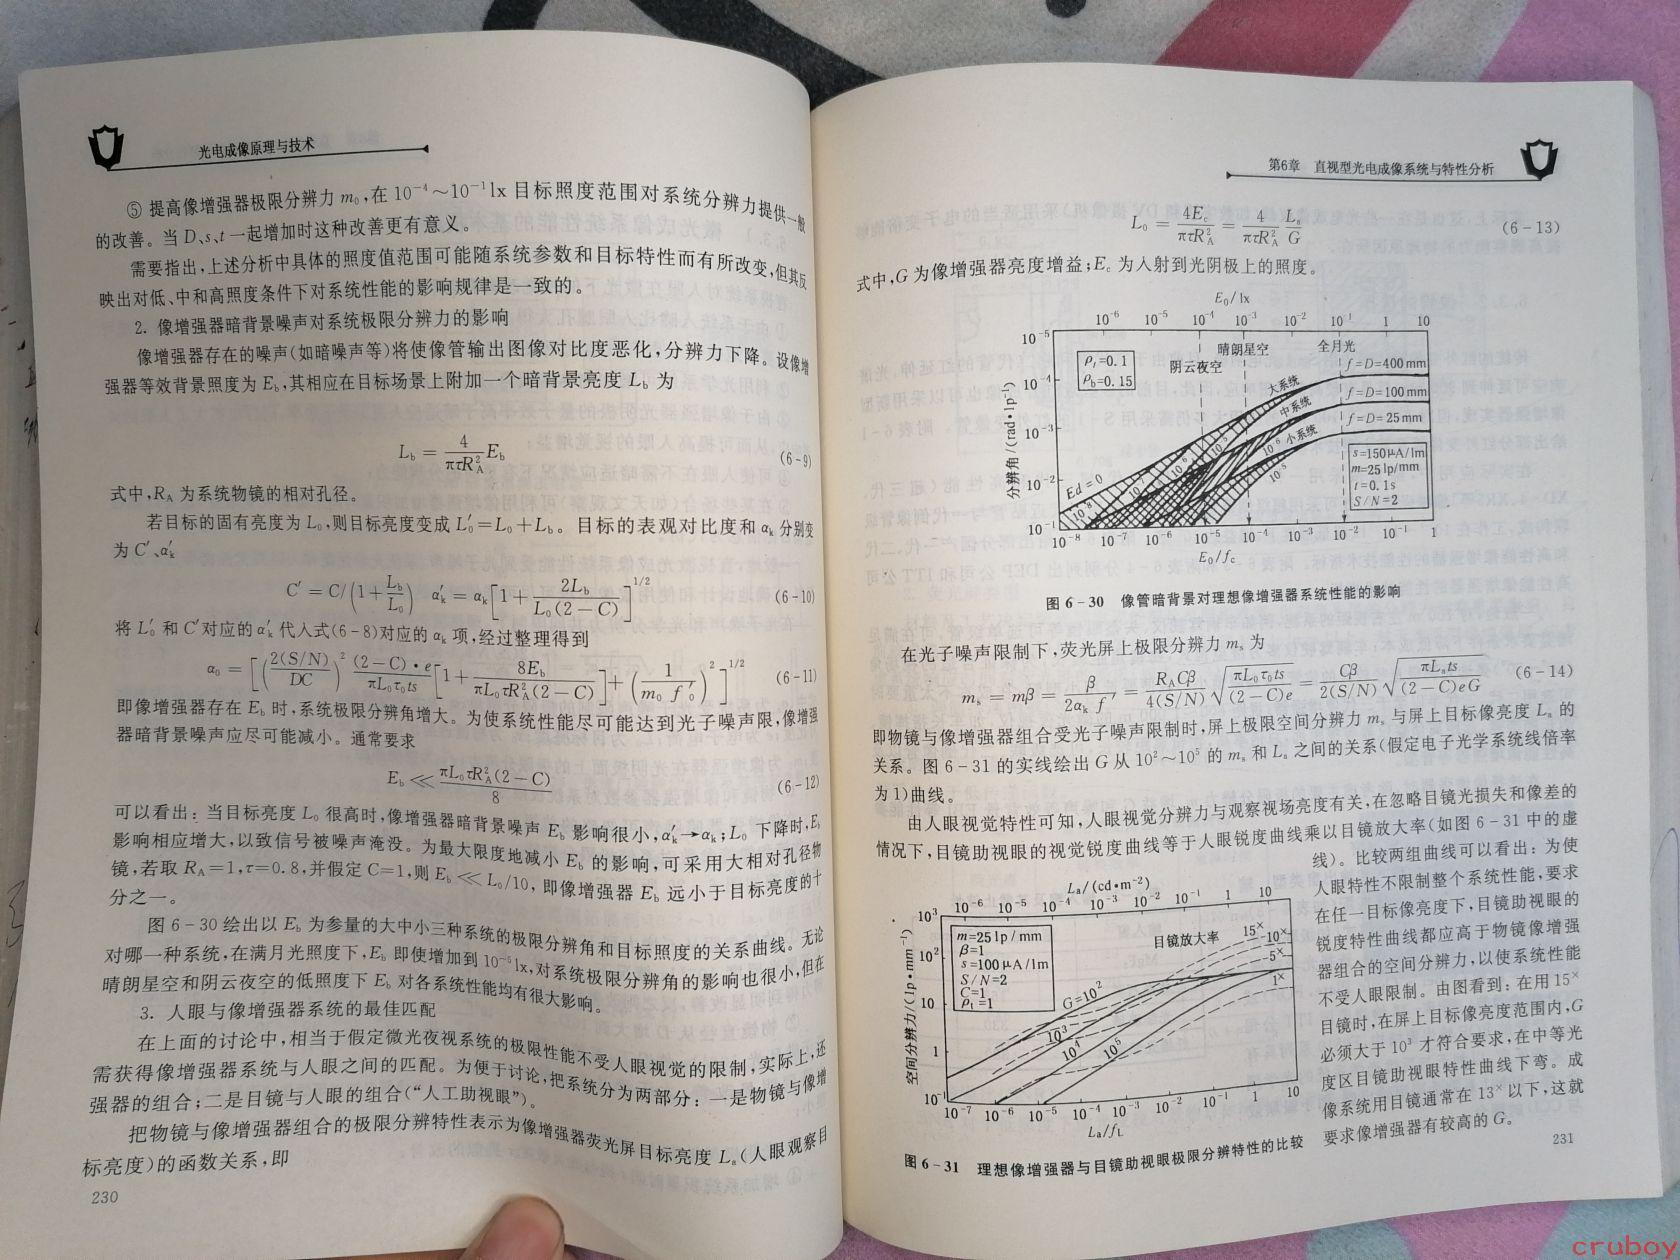 光电成像原理与技术
⑤ 提高像增强器极限分辨力 m₀,在 10⁻⁴～10⁻¹ lx 目标照度范围对系统分辨力提供一般
的改善。当 D、s、t 一起增加时这种改善更有意义。
需要指出,上述分析中具体的照度值范围可能随系统参数和目标特性而有所改变,但其反
映出对低、中和高照度条件下对系统性能的影响规律是一致的。
2. 像增强器暗背景噪声对系统极限分辨力的影响
像增强器存在的噪声(如暗噪声等)将使像管输出图像对比度恶化,分辨力下降。设像增
强器等效背景照度为 E_b,其相应在目标场景上附加一个暗背景亮度 L_b 为
L_b = 4/(πτR_A²) E_b (6-9)
式中,R_A 为系统物镜的相对孔径。
若目标的固有亮度为 L₀,则目标亮度变成 L₀′=L₀+L_b。目标的表观对比度和 α_k 分别变
为 C′、α_k′
C′ = C/(1+L_b/L₀) α_k′ = α_k[1+2L_b/(L₀(2-C))]^{1/2} (6-10)
将 L₀′ 和 C′对应的 α_k′ 代入式(6-8)对应的 α_k 项,经过整理得到
α₀ = [(2(S/N)/DC)² (2-C)·e/(πL₀τ₀ts) [1+8E_b/(πL₀τR_A²(2-C))]+(1/(m₀ f₀′))²]^{1/2} (6-11)
即像增强器存在 E_b 时,系统极限分辨角增大。为使系统性能尽可能达到光子噪声限,像增强
器暗背景噪声应尽可能减小。通常要求
E_b ≪ πL₀τR_A²(2-C)/8 (6-12)
可以看出：当目标亮度 L₀ 很高时,像增强器暗背景噪声 E_b 影响很小,α_k′→α_k;L₀ 下降时,E_b
影响相应增大,以致信号被噪声淹没。为最大限度地减小 E_b 的影响,可采用大相对孔径物
镜,若取 R_A=1,τ=0.8,并假定 C=1,则 E_b≪L₀/10, 即像增强器 E_b 远小于目标亮度的十
分之一。
图 6-30 绘出以 E_b 为参量的大中小三种系统的极限分辨角和目标照度的关系曲线。无论
对哪一种系统,在满月光照度下,E_b 即使增加到 10⁻⁵ lx,对系统极限分辨角的影响也很小,但在
晴朗星空和阴云夜空的低照度下 E_b 对各系统性能均有很大影响。
3. 人眼与像增强器系统的最佳匹配
在上面的讨论中,相当于假定微光夜视系统的极限性能不受人眼视觉的限制,实际上,还
需获得像增强器系统与人眼之间的匹配。为便于讨论,把系统分为两部分：一是物镜与像增
强器的组合;二是目镜与人眼的组合(“人工助视眼”)。
把物镜与像增强器组合的极限分辨特性表示为像增强器荧光屏目标亮度 L_a(人眼观察目
标亮度)的函数关系,即
230
第6章 直视型光电成像系统与特性分析
L₀ = 4E_c/(πτR_A²) = 4/(πτR_A²) L_a/G (6-13)
式中,G 为像增强器亮度增益;E_c 为入射到光阴极上的照度。
E₀/lx
10⁻⁶ 10⁻⁵ 10⁻⁴ 10⁻³ 10⁻² 10⁻¹ 1 10
10⁻⁵
10⁻⁴
10⁻³
10⁻²
10⁻¹
分辨角/(rad·lp⁻¹)
ρ_t=0.1
ρ_b=0.15
阴云夜空
晴朗星空
全月光
大系统
中系统
小系统
f=D=400mm
f=D=100mm
f=D=25mm
s=150μA/lm
m=25lp/mm
t=0.1s
S/N=2
Ed=0
10⁻⁸ 10⁻⁷ 10⁻⁶ 10⁻⁵ 10⁻⁴ 10⁻³ 10⁻² 10⁻¹ 1
E₀/f_c
图 6-30 像管暗背景对理想像增强器系统性能的影响
在光子噪声限制下,荧光屏上极限分辨力 m_s 为
m_s = mβ = β/(2α_k f′) = R_A Cβ/(4(S/N)) √(πL₀τ₀ts/((2-C)e)) = Cβ/(2(S/N)) √(πL_a ts/((2-C)eG)) (6-14)
即物镜与像增强器组合受光子噪声限制时,屏上极限空间分辨力 m_s 与屏上目标像亮度 L_a 的
关系。图 6-31 的实线绘出 G 从 10²～10⁵ 的 m_s 和 L_a 之间的关系(假定电子光学系统线倍率
为 1)曲线。
由人眼视觉特性可知,人眼视觉分辨力与观察视场亮度有关,在忽略目镜光损失和像差的
情况下,目镜助视眼的视觉锐度曲线等于人眼锐度曲线乘以目镜放大率(如图 6-31 中的虚
线)。比较两组曲线可以看出：为使
人眼特性不限制整个系统性能,要求
在任一目标像亮度下,目镜助视眼的
锐度特性曲线都应高于物镜像增强
器组合的空间分辨力,以使系统性能
不受人眼限制。由图看到：在用 15×
目镜时,在屏上目标像亮度范围内,G
必须大于 10³ 才符合要求,在中等光
度区目镜助视眼特性曲线下弯。成
像系统用目镜通常在 13× 以下,这就
要求像增强器有较高的 G。
L_a/(cd·m⁻²)
10⁻⁶ 10⁻⁵ 10⁻⁴ 10⁻³ 10⁻² 10⁻¹ 1 10
10³
10²
10
1
10⁻¹
空间分辨力/(lp·mm⁻¹)
m=25lp/mm
β=1
s=100μA/lm
S/N=2
C=1
ρ_t=1
目镜放大率
15×
10×
5×
1×
G=10²
10³
10⁴
10⁵
10⁻⁷ 10⁻⁶ 10⁻⁵ 10⁻⁴ 10⁻³ 10⁻² 10⁻¹ 1 10
L_a/f_L
图 6-31 理想像增强器与目镜助视眼极限分辨特性的比较
231
cruboy